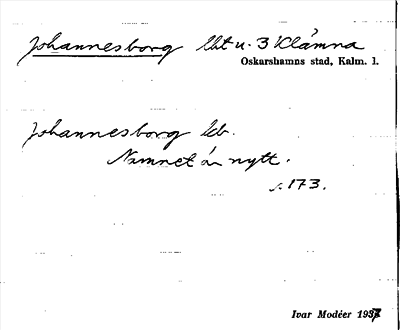 Johannesborg lht u. 3 Klämna
Oskarshamns stad, Kalm. l.
Johannesborg
Namnet är nytt.
s. 173.
Ivar Modéer 1937